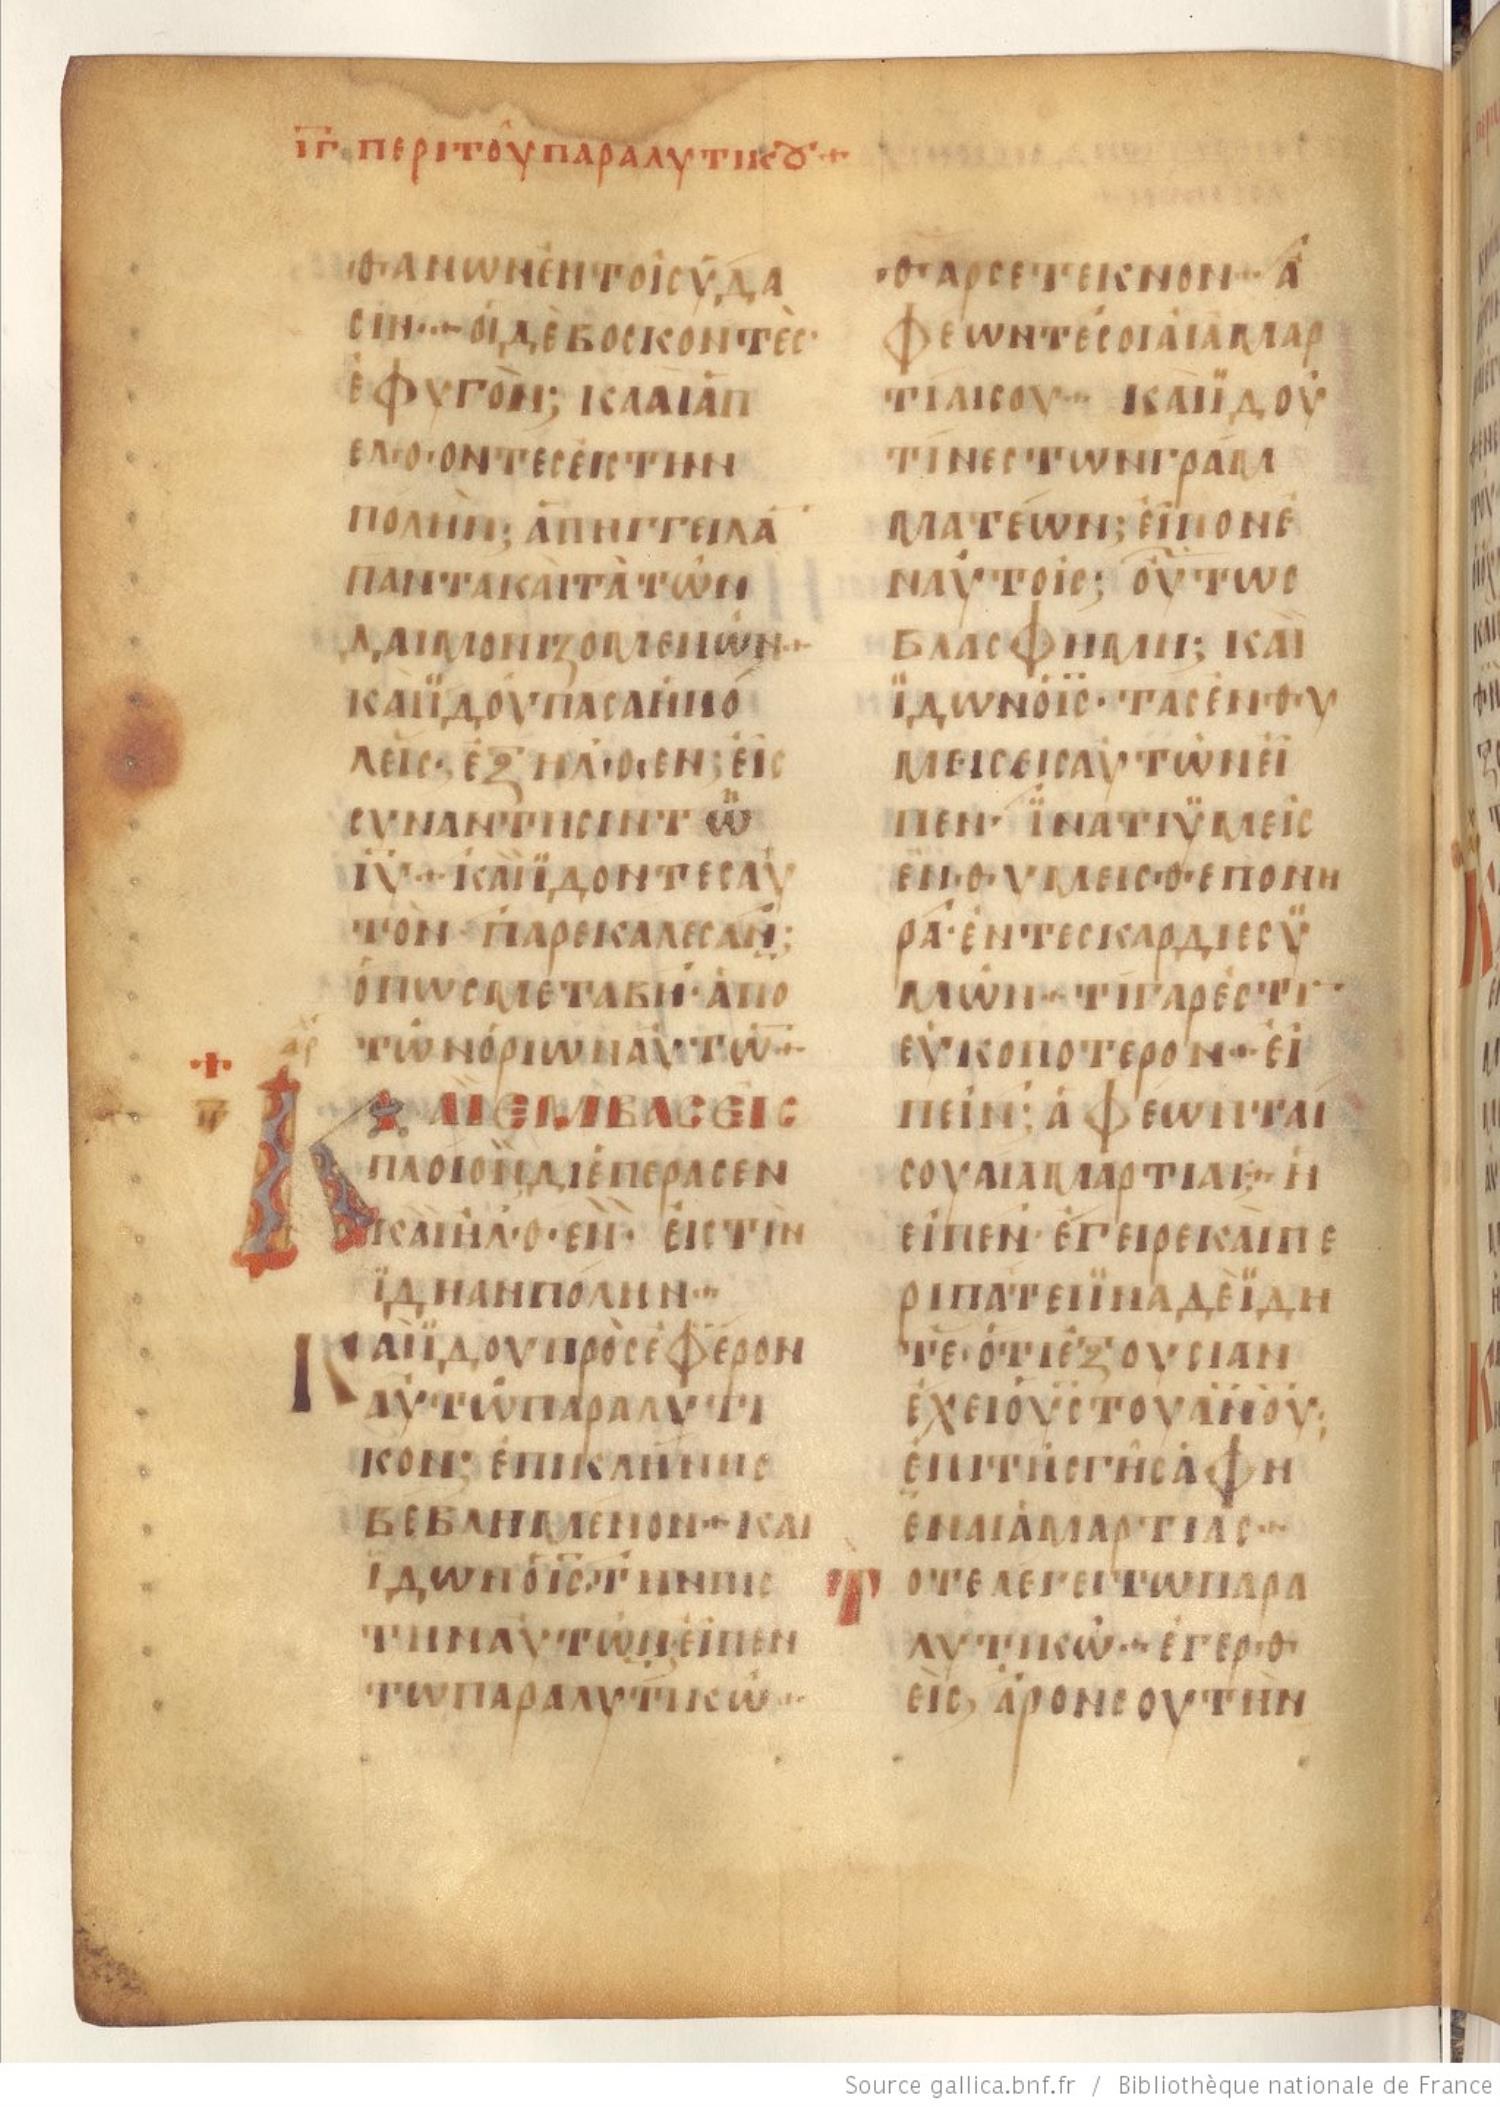 ΙΓ ΠΕΡΙΤΟΥΠΑΡΑΛΥΤΙΚȢ+
ΘΑΝΩΝΕΝΤΟΙΣΥΔΑ
ΣΙΝ·+ΟΙΔΕΒΟΣΚΟΝΤΕΣ·
ΕΦΥΓΟΝ; ΚΛΑΙΑΠ
ΕΛΘΟΝΤΕΣΕΙΣΤΗΝ
ΠΟΛΗΝ; ΑΠΗΓΓΕΙΛΑ
ΠΑΝΤΑΚΑΙΤΑΤΩΝ
ΔΑΙΜΟΝΙΖΟΜΕΝΩΝ·+
ΚΑΙΪΔΟΥΠΑΣΑΗΠΟ
ΛΕΙΣ·ΕΞΗΛΘΕΝ;ΕΙΣ
ΣΥΝΑΝΤΗΣΙΝΤΩ
ΙΥ+ΚΑΙΪΔΟΝΤΕΣΑΥ
ΤΟΝ·ΠΑΡΕΚΑΛΕΣΑΝ;
ΟΠΩΣΜΕΤΑΒΗ·ΑΠΟ
ΤΩΝΟΡΙΩΝΑΥΤΩ+
ΚΑΙΕΜΒΑΣΕΙΣ
ΠΛΟΙΟΝΔΙΕΠΕΡΑΣΕΝ
ΚΑΙΗΛΘΕΝ· ΕΙΣΤΙΝ
ΪΔΗΑΝΠΟΛΗΝ·+
ΚΑΙΪΔΟΥΠΡΟΣΕΦΕΡΟΝ
ΑΥΤΩΠΑΡΑΛΥΤΙ
ΚΟΝ; ΕΠΙΚΛΗΝΗΣ
ΒΕΒΛΗΜΕΝΟΝ·+ΚΑΙ
ΪΔΩΝΟΙΣ·ΤΗΝΠΙΣ
ΤΗΝΑΥΤΩΝ·ΕΙΠΕΝ
ΤΩΠΑΡΑΛΥΤΙΚΩ·+
ΘΑΡΣΕΤΕΚΝΟΝ·+Α
ΦΕΩΝΤΕΣΟΙΑΙΑΜΑΡ
ΤΙΑΙΣΟΥ·+ ΚΑΙΪΔΟΥ
ΤΙΝΕΣΤΩΝΓΡΑΜ
ΜΑΤΕΩΝ;ΕΙΠΟΝΕ
ΝΑΥΤΟΙΣ; ΟΥΤΩΣ
ΒΛΑΣΦΗΜΗ; ΚΑΙ
ΪΔΩΝΟΙΣ·ΤΑΣΕΝΘΥ
ΜΕΙΣΕΙΣΑΥΤΩΝΕΙ
ΠΕΝ· ΪΝΑΤΙΥΜΕΙΣ
ΕΝΘΥΜΕΙΣΘΕΠΟΝΗ
ΡΑ·ΕΝΤΕΣΚΑΡΔΙΕΣΥ
ΜΩΝ·+ΤΙΓΑΡΕΣΤΙ·
ΕΥΚΟΠΟΤΕΡΟΝ·+ΕΙ
ΠΕΙΝ; ΑΦΕΩΝΤΑΙ
ΣΟΥΑΙΑΜΑΡΤΙΑΙ·+Η
ΕΙΠΕΝ·ΕΓΕΙΡΕΚΑΙΠΕ
ΡΙΠΑΤΕΙΪΝΑΔΕΪΔΗ
ΤΕ·ΟΤΙΕΞΟΥΣΙΑΝ
ΕΧΕΙΟΥΣΤΟΥΑΝΟΥ;
ΕΠΙΤΗΣΓΗΣΑΦΗ
ΕΝΑΙΑΜΑΡΤΙΑΣ·+
ΤΟΤΕΛΕΓΕΙΤΩΠΑΡΑ
ΛΥΤΙΚΩ·+ΕΓΕΡΘ
ΕΙΣ, ΑΡΟΝΣΟΥΤΗΝ
Source gallica.bnf.fr / Bibliothèque nationale de France